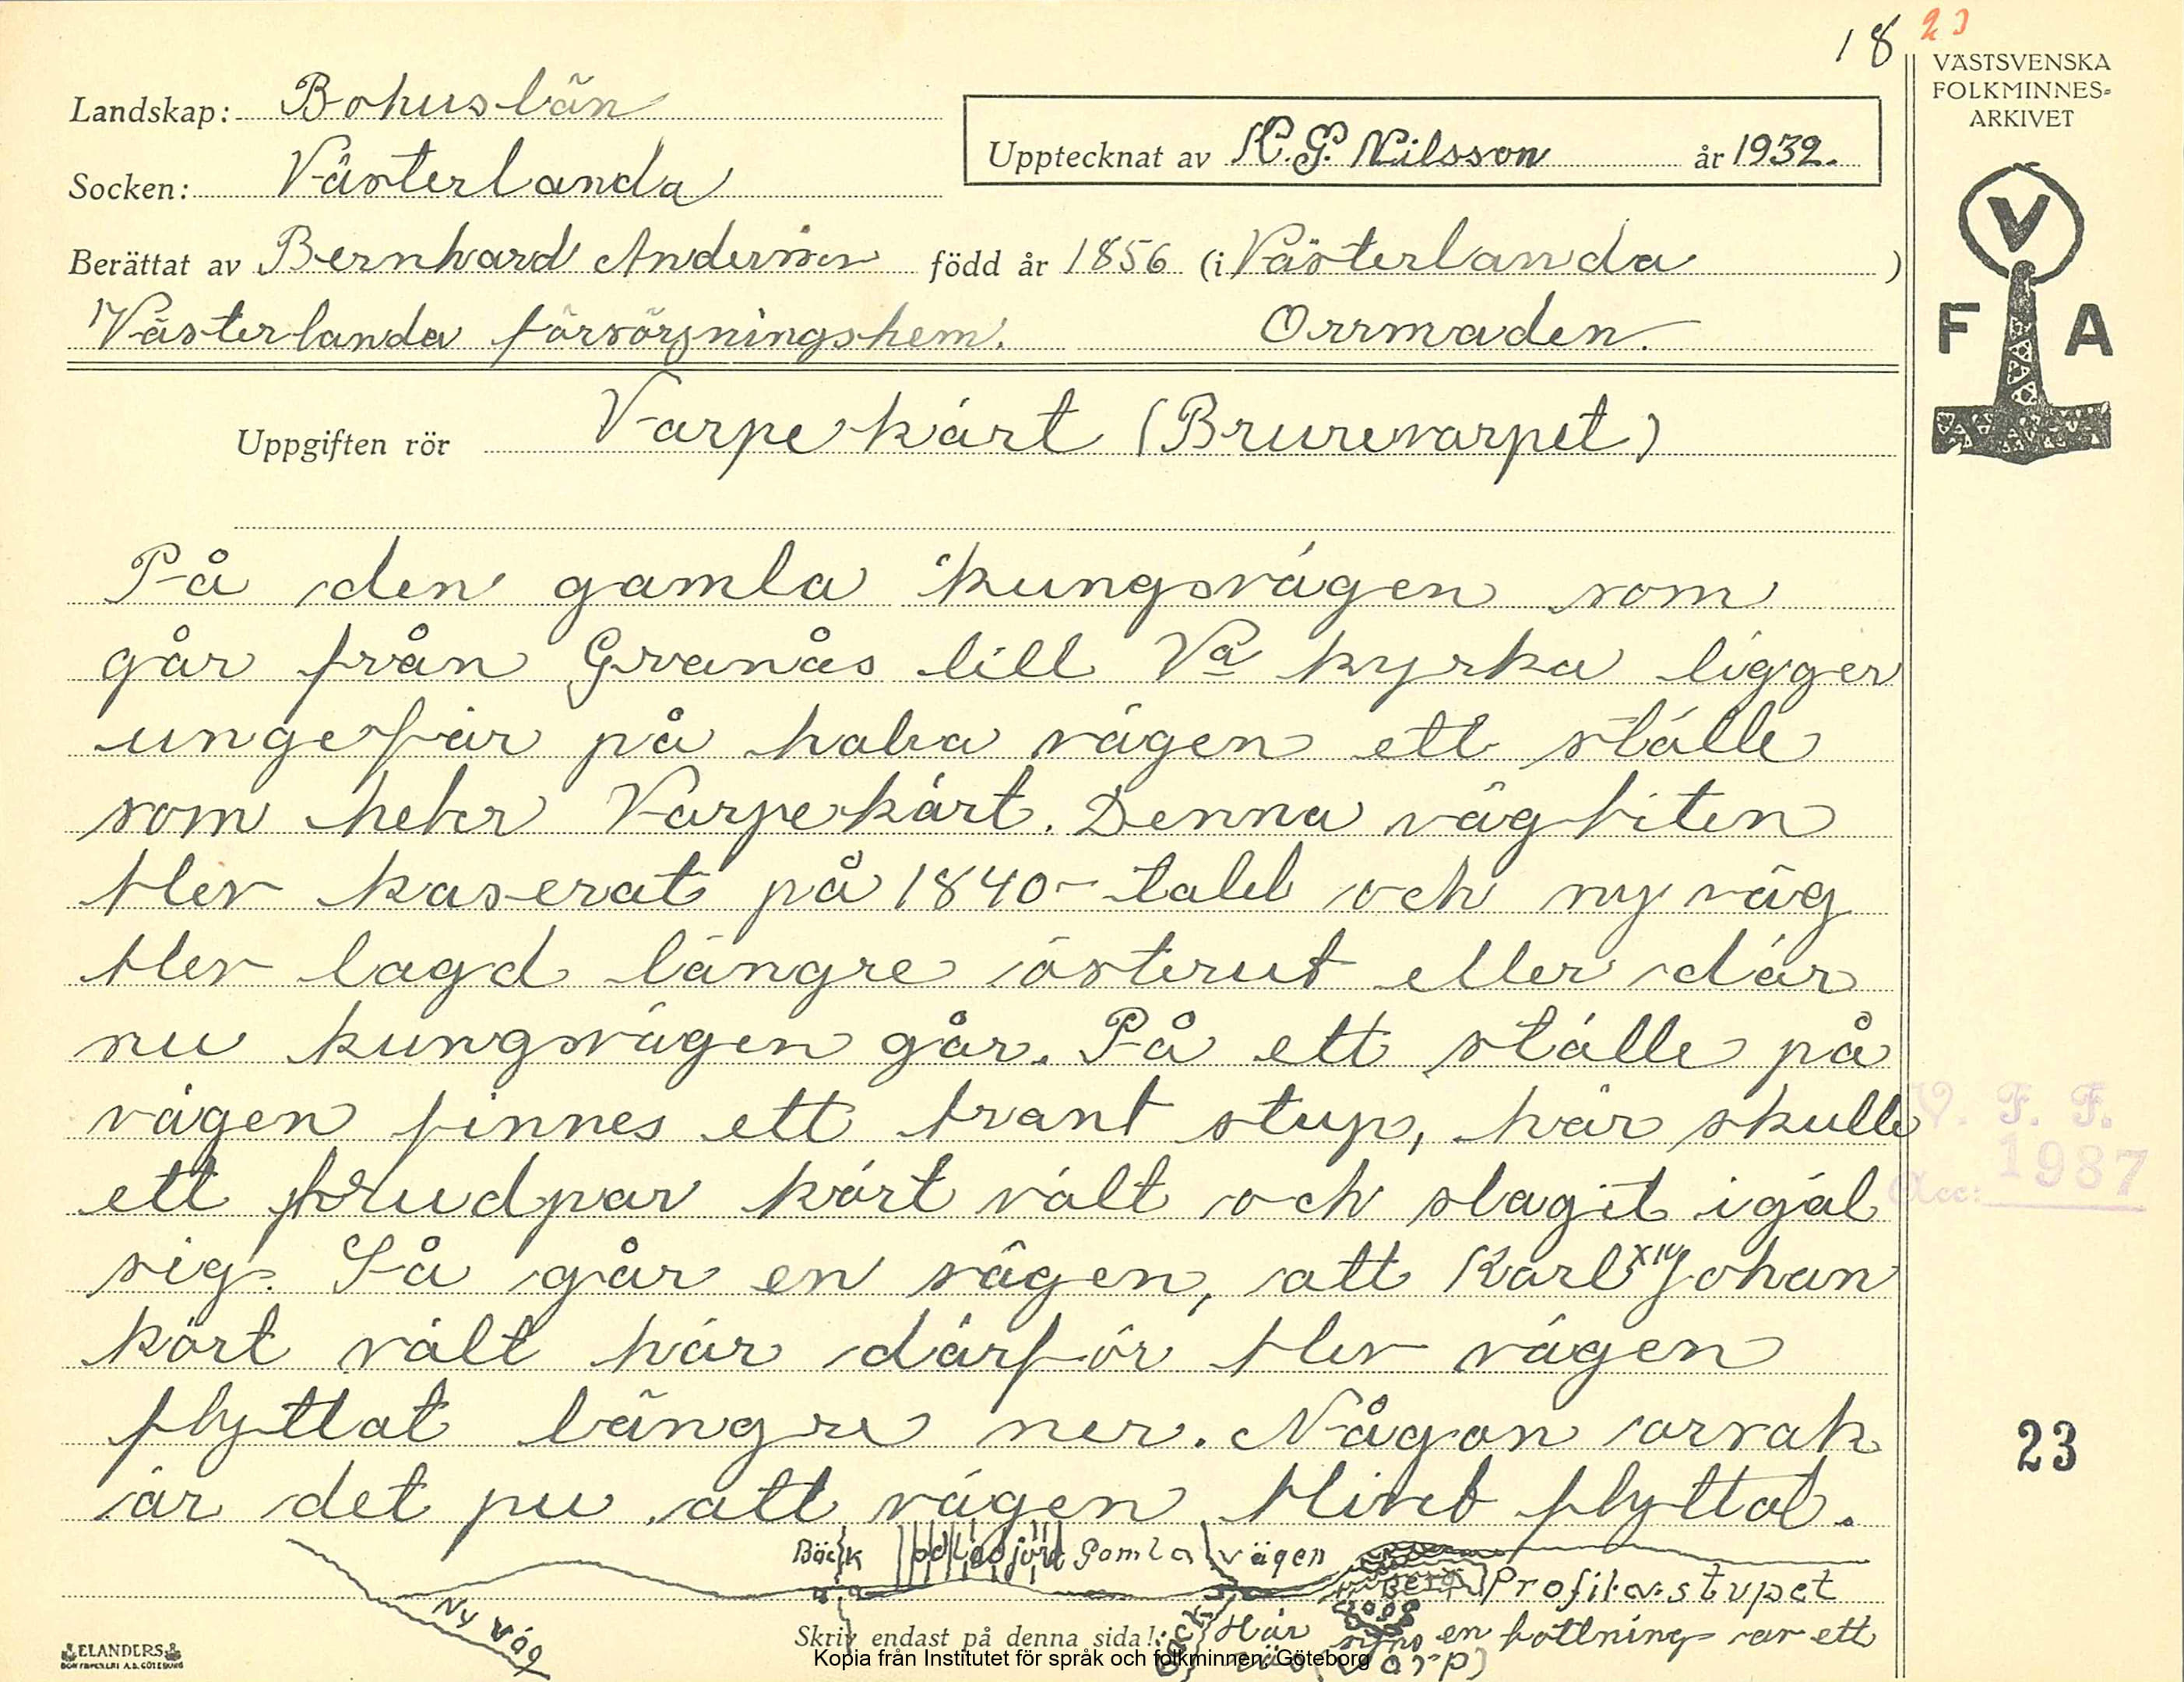 18 23
VÄSTSVENSKA
FOLKMINNES-
ARKIVET
Landskap: Bohuslän
Upptecknat av K. G. Nilsson år 1932.
Socken: Västerlanda
Berättat av Bernhard Andersson född år 1856 (i Västerlanda )
Västerlanda försörjningshem. Orrmaden.
V
F A
Uppgiften rör Varpekärt (Brurevarpet)
På den gamla kungsvägen som
går från Granås till Va kyrka ligger
ungefär på halva vägen ett ställe
som heter Varpekärt. Denna vägbiten
blev kaserat på 1840-talet och ny väg
blev lagd längre österut eller där
nu kungsvägen går. På ett ställe på
vägen finnes ett brant stup, här skulle
ett brudpar kört vält och slagit igäl
sig. Så går en sägen, att Karl XIV Johan
kört vält här därför blev vägen
flyttat längre ner. Någon orsak
är det ju att vägen blivet flyttat.
V. F. F.
Acc: 1987
23
Bäck odlad jord Gamla vägen
Berg Profil av stupet
Ny väg
Skriv endast på denna sida!
Bäck Här syns en bottning av ett
(Varp)
ELANDERS
BOKTRYCKERI A.B. GÖTEBORG
Kopia från Institutet för språk och folkminnen, Göteborg